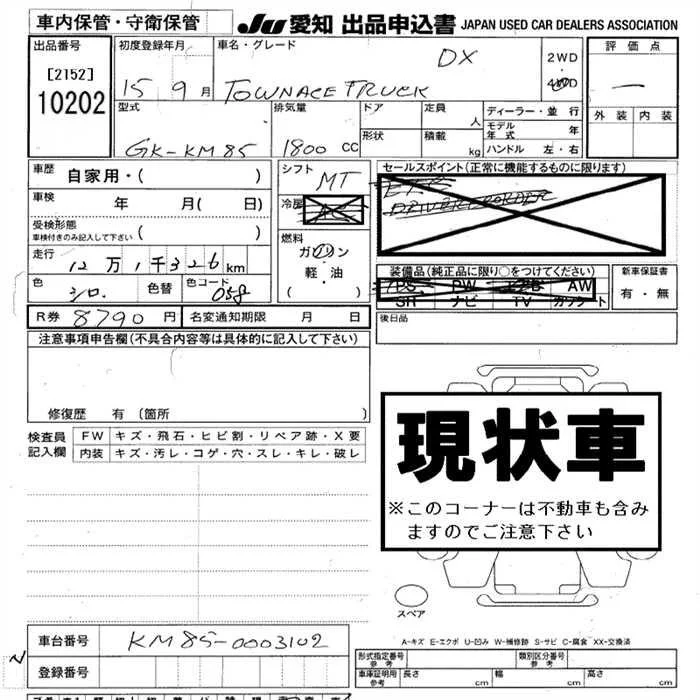 車内保管・守衛保管 JU 愛知 出品申込書 JAPAN USED CAR DEALERS ASSOCIATION
出品番号 初度登録年月 車名・グレード DX 2WD 評価点
[2152] 15 9月 TOWNACE TRUCK 4WD
10202 型式 排気量 ドア 定員 人 ディーラー・並行 外装 内装
モデル年式 年
GK-KM85 1800 CC 形状 積載 kg ハンドル 左・右
車歴 自家用・( ) シフト MT セールスポイント(正常に機能するものに限ります)
車検 年 月( 日) 冷房 AC
受検形態 ( )
車検付きのみ記入して下さい
燃料
走行 12万1千326km ガソリン 装備品(純正品に限り○をつけてください) 新車保証書
軽・油 PS PW エアB AW 有・無
色 シロ 色替 色コード 058 ( ) SR ナビ TV カワシート
R券 8790円 名変通知期限 月 日 後日品
注意事項申告欄(不具合内容等は具体的に記入して下さい)
修復歴 有 (箇所
検査員 FW キズ・飛石・ヒビ割・リペア跡・X要
記入欄 内装 キズ・汚レ・コゲ・穴・スレ・キレ・破レ
現状車
※このコーナーは不動車も含み
ますのでご注意下さい
スペア
A-キズ E-エクボ U-凹み W-補修跡 S-サビ C-腐食 XX-交換済
車台番号 KM85-0003102
形式指定番号 参考 類別区分番号 参考
登録番号 車庫証明用 参考 長さ cm 幅 cm 高さ cm